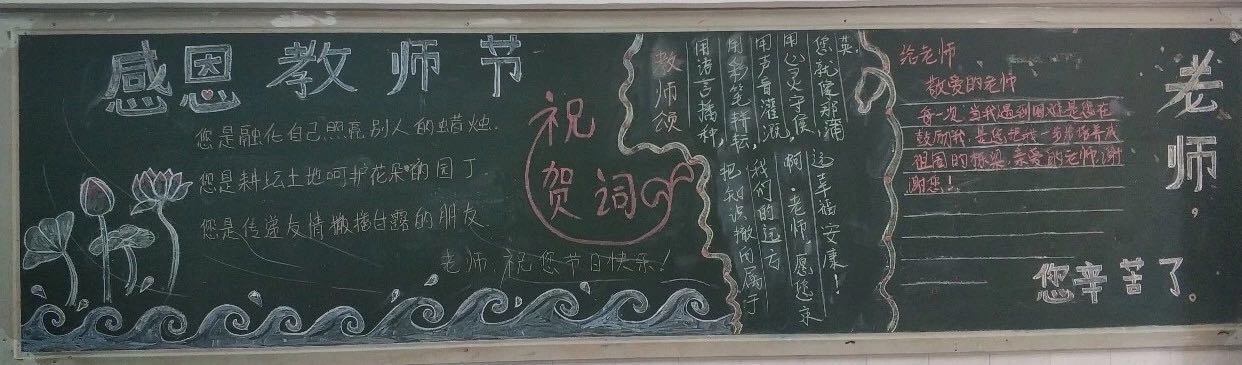 感恩教师节
您是融化自己照亮别人的蜡烛.
您是耕坛土地呵护花朵的园丁
您是传递友情撒播甘露的朋友.
老师 祝您节日快乐!
祝贺词
教师颂
用语言播种,
用彩笔耕耘,
用声音灌溉,
用心灵守候,
您就像那蒲
英.
把知识撒向属于
我们的远方
啊,老师,愿您未
这幸福安康!
给老师
敬爱的老师
每一次当我遇到困难是您在
鼓励我,是您把我一步步培养成
祖国的栋梁,亲爱的老师,谢
谢您!
老师,
您辛苦了。